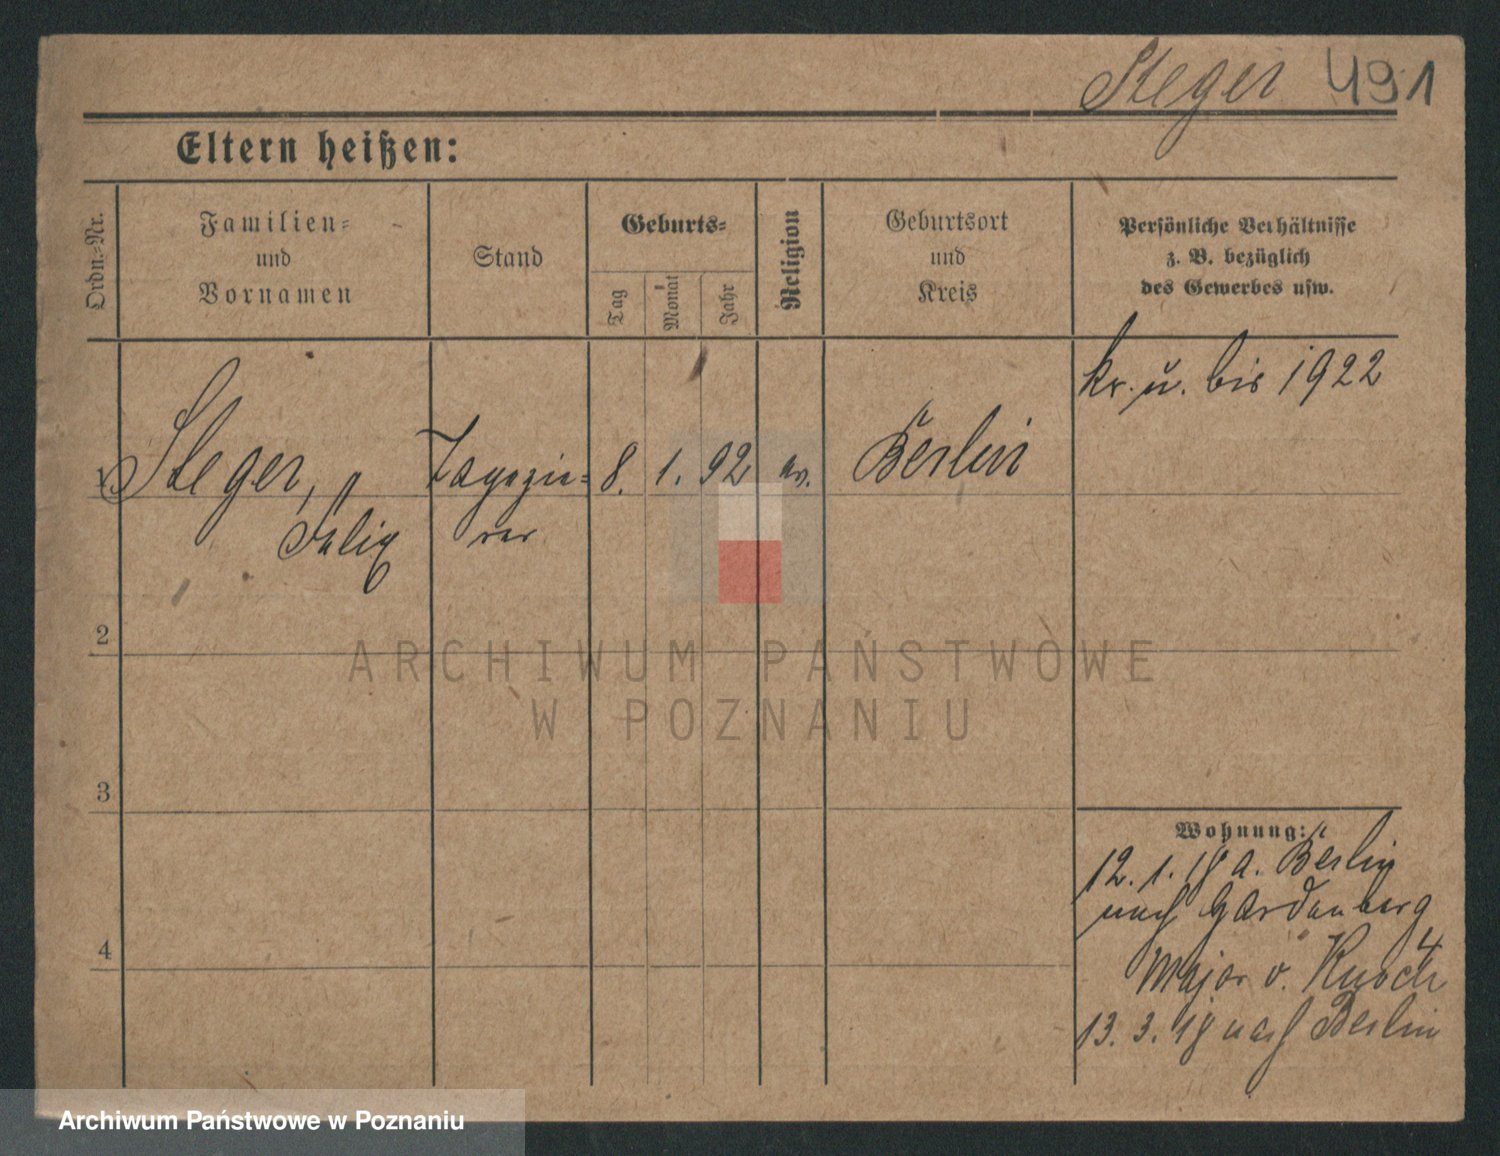 Steger 491
Eltern heißen:
Ordn.-Nr.
Familien-
und
Vornamen
Stand
Geburts-
Tag
Monat
Jahr
Religion
Geburtsort
und
Kreis
Persönliche Verhältnisse
z. B. bezüglich
des Gewerbes usw.
kr. u. bis 1922
1 Steger,
Felix
Tapezie-
rer
8. 1. 92 ev. Berlin
2
3
4
Wohnung:
12. 1. 18 a. Berlin
nach Gardenberg
Major v.
13. 3. 18 nach Berlin
ARCHIWUM PAŃSTWOWE
W POZNANIU
Archiwum Państwowe w Poznaniu